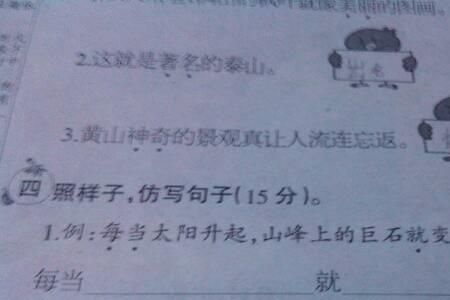 美丽的图画。
2.这就是著名的泰山。 出名
3.黄山神奇的景观真让人流连忘返。
四 照样子,仿写句子(15分)。
1.例:每当太阳升起,山峰上的巨石就变
每当 就